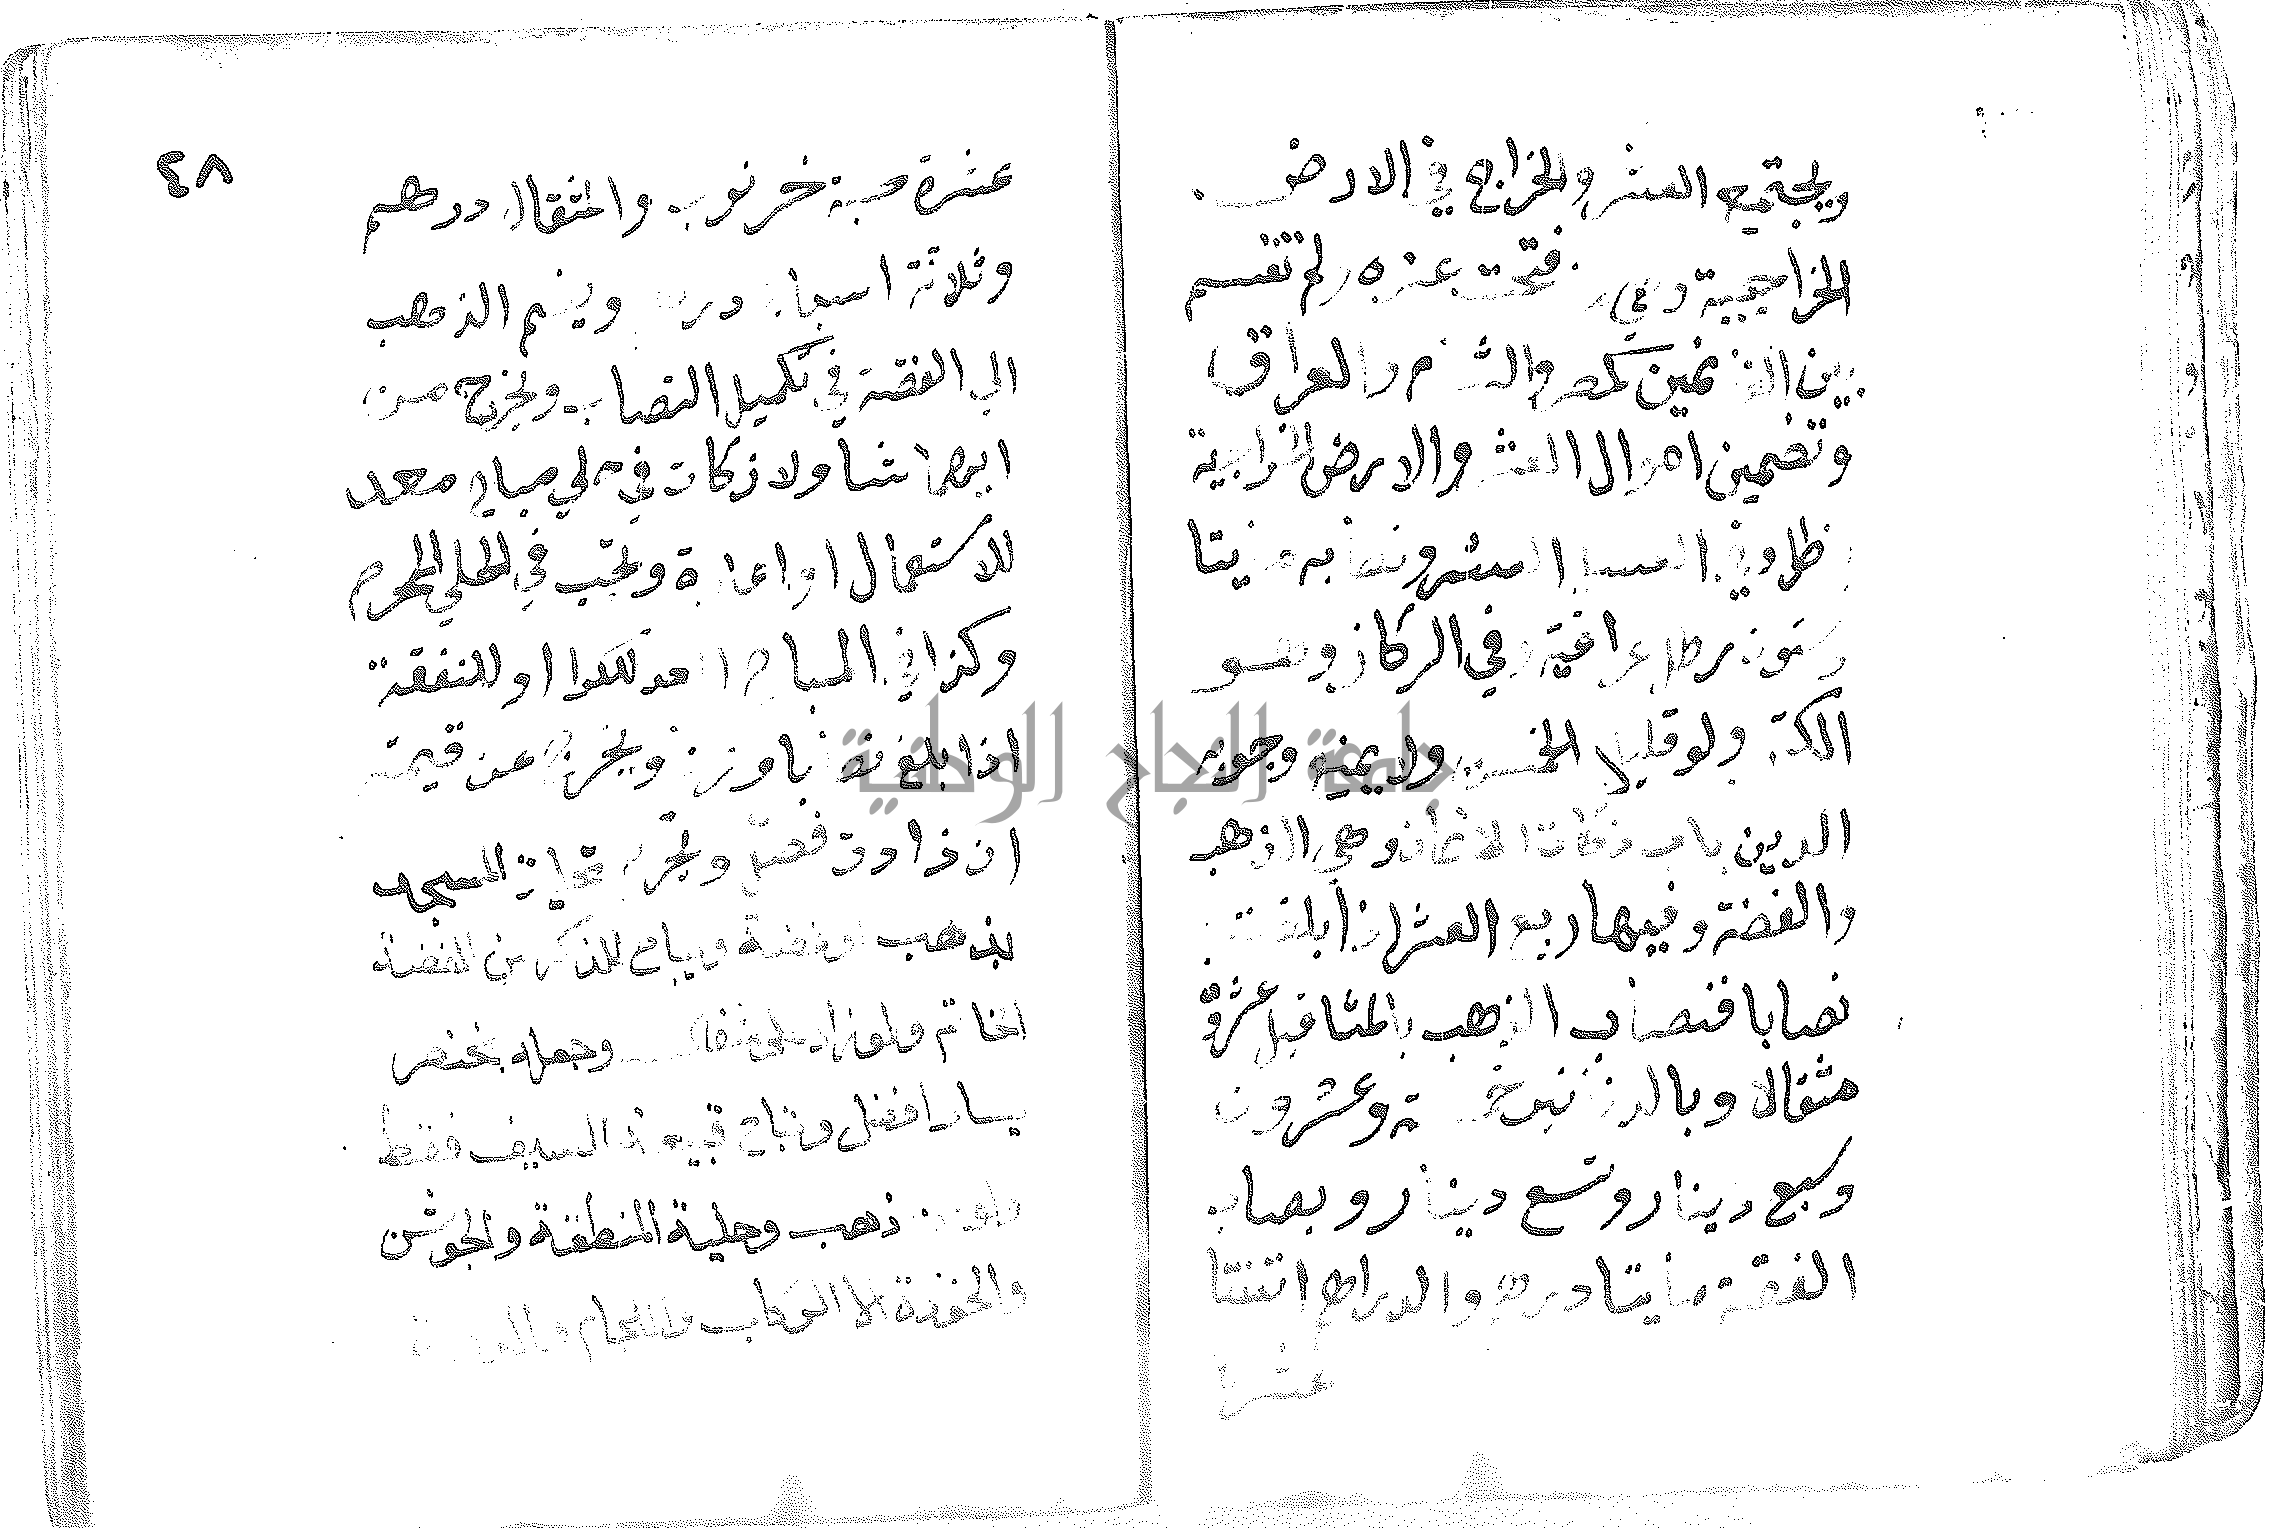 ويجتمع العشر والخراج في الارض
الخراجية وهي فتحت عنوه ولم تقسم
بين الغانمين كمصر والشام والعراق
وتضمين اموال العشر والارض الخراجية
العسل العشر ونصابه مئتا
وستون رطل عراقية وفي الركاز وهو
الكنز ولو قليلا الخمس ولا يمنع وجوبه
الدين باب زكات الاثمان وهي الذهب
والفضة وفيها ربع العشر اذا بلغت
نصابا فنصاب الذهب بالمثاقيل عشرون
مثقالا وبالدنانير خمسة وعشرون
وسبع دينار وتسع دينار ونصاب
الفضة مايتا درهم والدراهم اثنتا
عشرة
عشرة حبة خرنوب والمثقال درهم
وثلاثة اسباع درهم ويضم الذهب
الى الفضة في تكميل النصاب ويخرج من
ايهما شا ولا زكات في حلي مباح معد
للاستعمال او اعارة وتجب في الحلي المحرم
وكذا في المباح المعد للكرا او للنفقة
اذا بلغ نصابا وزنا ويخرج من قيمته
ان زادت فضل وتحرم تحلية المسجد
بذهب او فضة ويباح للذكر من الفضة
الخاتم ولو زاد على مثقال وجعله بخنصر
يسار افضل وتباح قبيعة السيف فقط
ولو من ذهب وحلية المنطقة والجوشن
والخوذة لا الركاب واللجام
٤٨
جامعة النجاح الوطنية